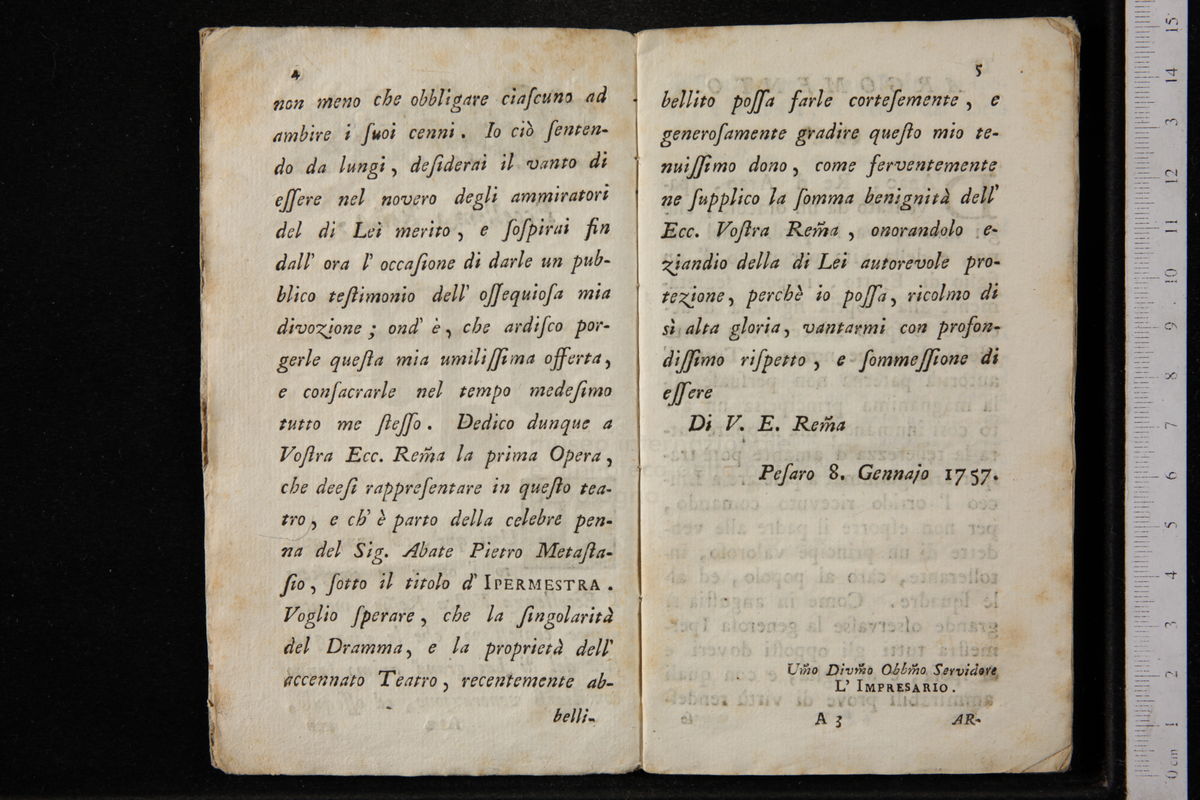 4
non meno che obbligare ciaſcuno ad
ambire i ſuoi cenni. Io ciò ſenten-
do da lungi, deſiderai il vanto di
eſſere nel novero degli ammiratori
del di Lei merito, e ſoſpirai fin
dall' ora l' occaſione di darle un pub-
blico teſtimonio dell' oſſequioſa mia
divozione; ond' è, che ardiſco por-
gerle queſta mia umiliſſima offerta,
e conſacrarle nel tempo medeſimo
tutto me ſteſſo. Dedico dunque a
Voſtra Ecc. Rem̃a la prima Opera,
che deeſi rappreſentare in queſto tea-
tro, e ch' è parto della celebre pen-
na del Sig. Abate Pietro Metaſta-
ſio, ſotto il titolo d' IPERMESTRA.
Voglio ſperare, che la ſingolarità
del Dramma, e la proprietà dell'
accennato Teatro, recentemente ab-
belli-
5
bellito poſſa farle corteſemente, e
generoſamente gradire queſto mio te-
nuiſſimo dono, come ferventemente
ne ſupplico la ſomma benignità dell'
Ecc. Voſtra Rem̃a, onorandolo e-
ziandio della di Lei autorevole pro-
tezione, perchè io poſſa, ricolmo di
sì alta gloria, vantarmi con profon-
diſſimo riſpetto, e ſommeſſione di
eſſere
Di V. E. Rem̃a
Peſaro 8. Gennajo 1757.
Um̃o Divm̃o Obbm̃o Servidore
L' IMPRESARIO.
A 3
AR-
0 cm 1 2 3 4 5 6 7 8 9 10 11 12 13 14 15